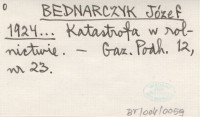 BEDNARCZYK Józef
1924... Katastrofa w rol-
nictwie. — Gaz. Podh. 12,
nr 23.
BT/004/0059